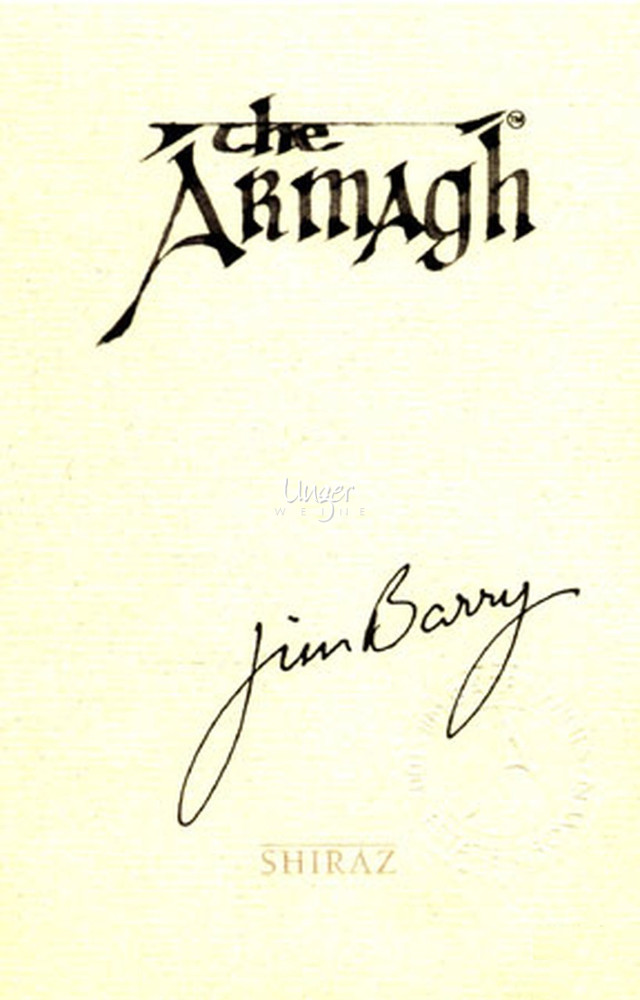 the
Armagh™
Unger
WEINE
Jim Barry
SHIRAZ